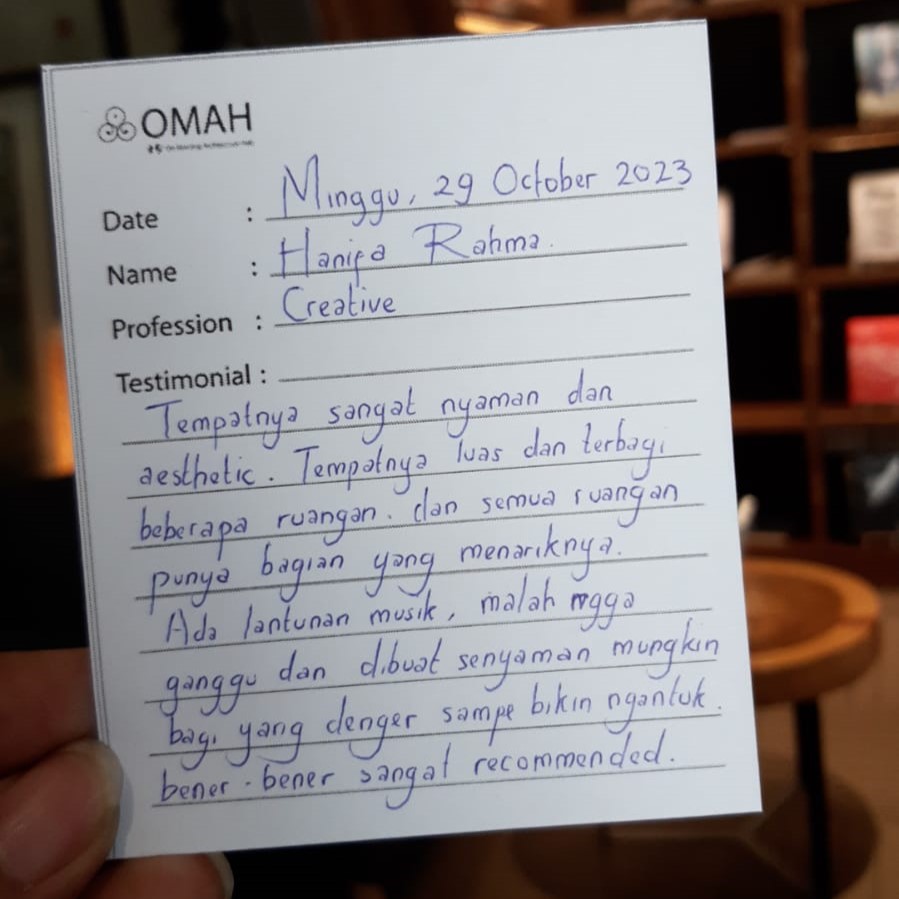 OMAH
Date : Minggu, 29 October 2023
Name : Hanifa Rahma.
Profession : Creative
Testimonial :
Tempatnya sangat nyaman dan
aesthetic. Tempatnya luas dan terbagi
beberapa ruangan. dan semua ruangan
punya bagian yang menariknya.
Ada lantunan musik, malah ngga
ganggu dan dibuat senyaman mungkin
bagi yang denger sampe bikin ngantuk.
bener-bener sangat recommended.